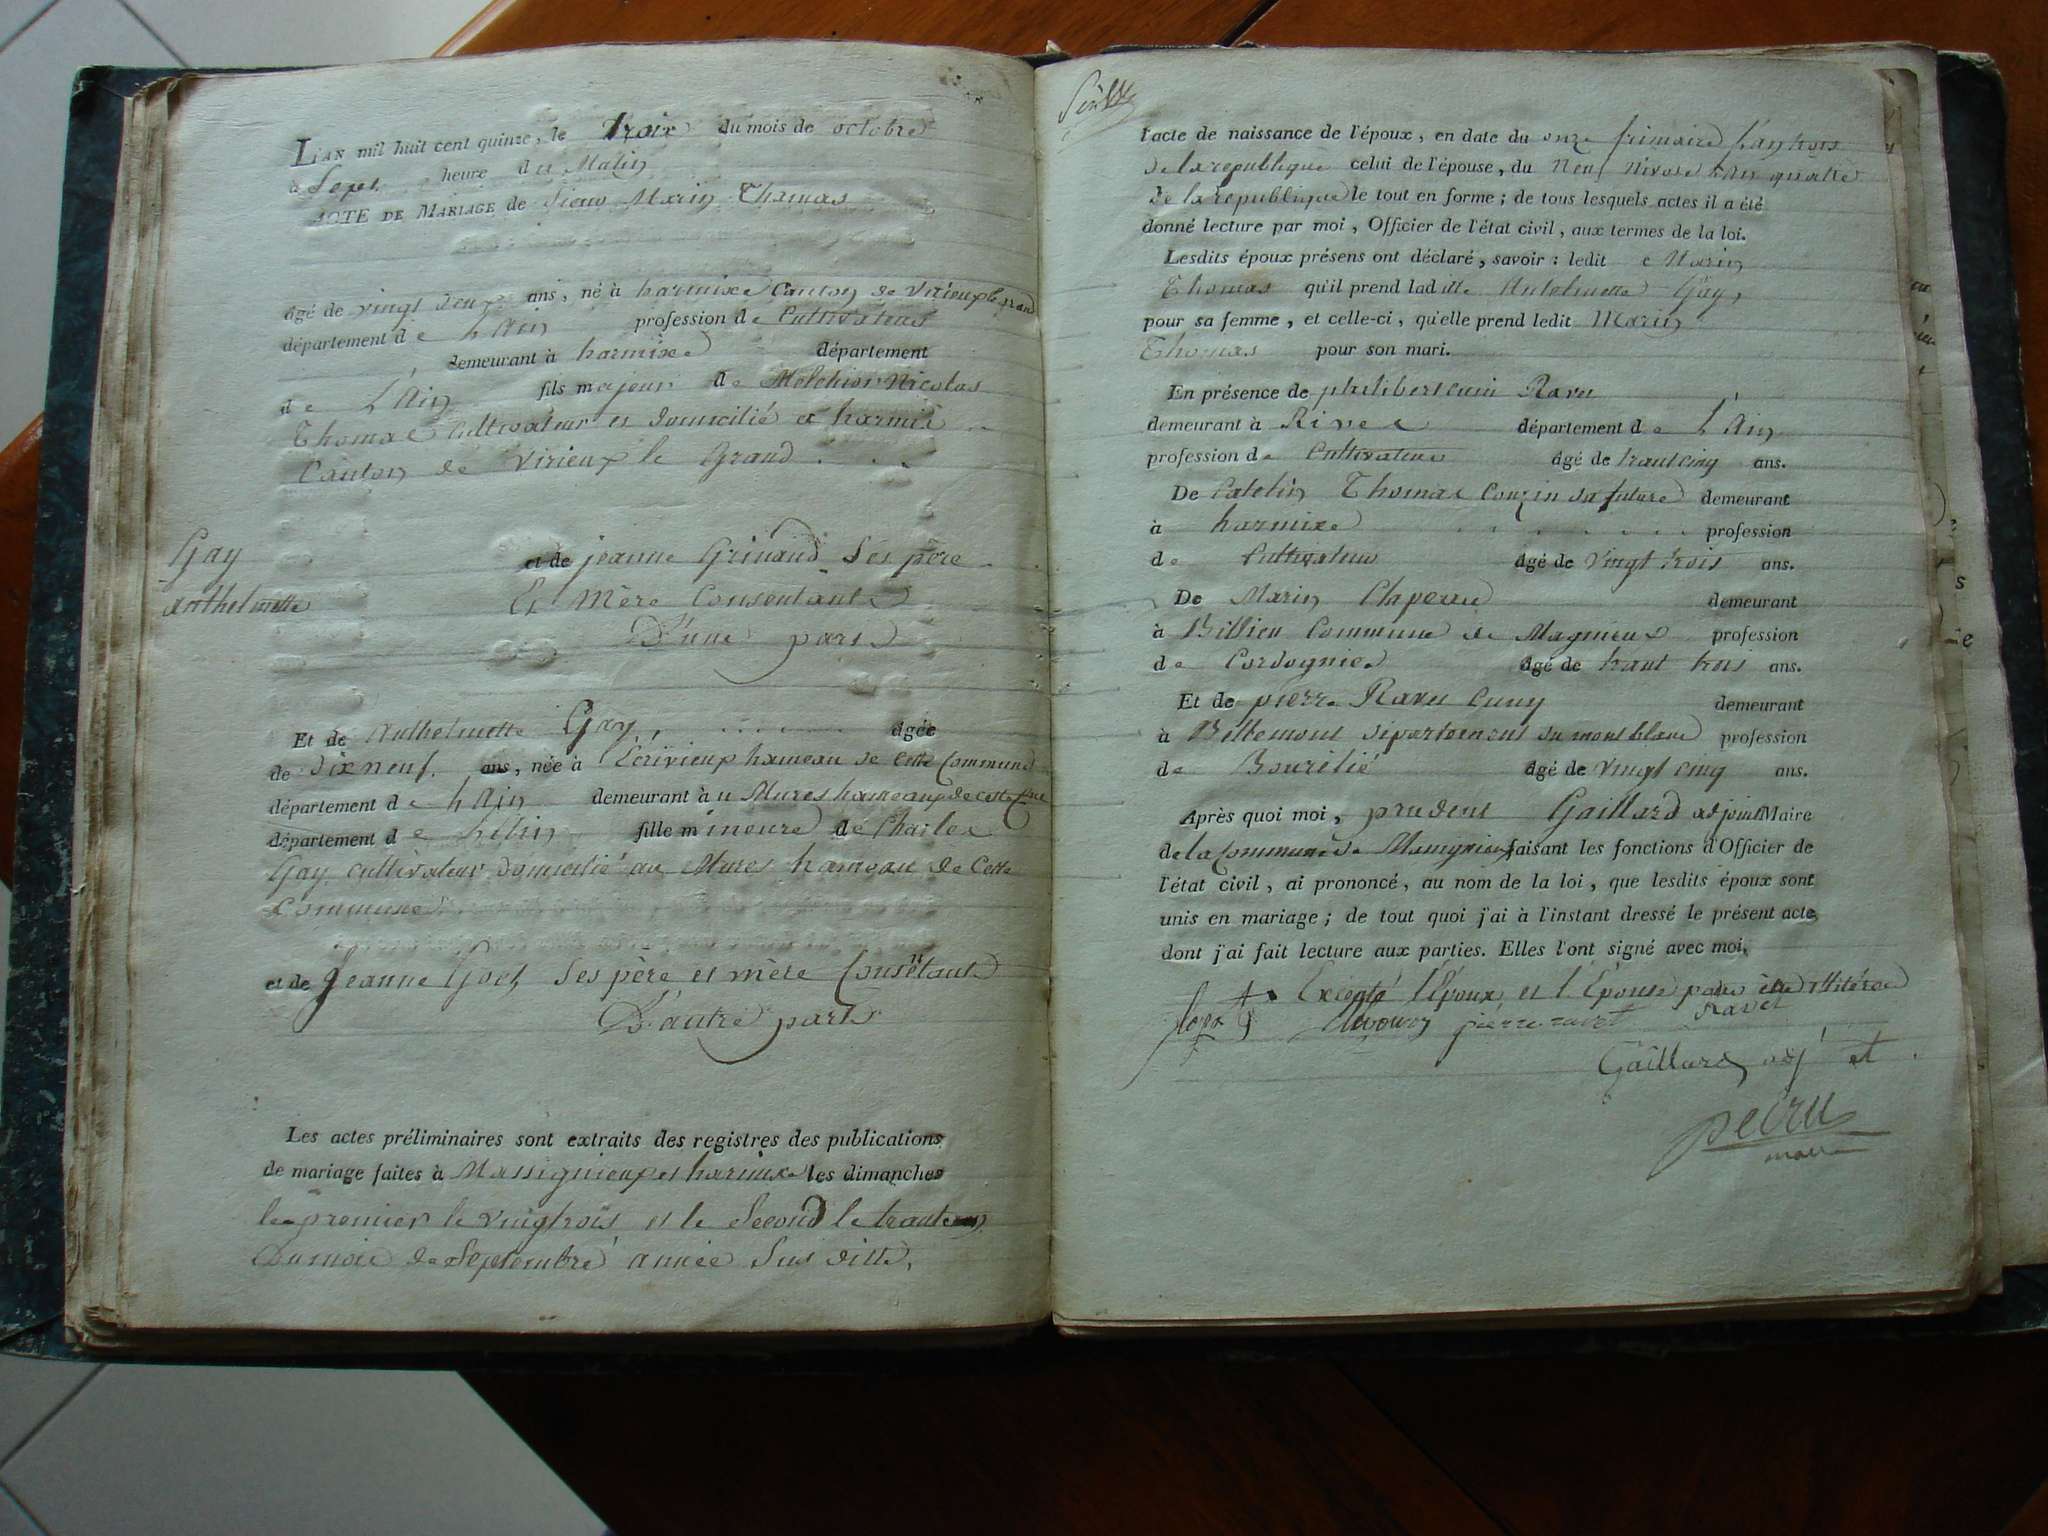 L'AN mil huit cent quinze, le Trois du mois de octobre
à Sept heure du Matin
ACTE DE MARIAGE de Sieur Marin Thomas
âgé de vingt deux ans, né à harmixe Canton de Virieux le grand
département de L'Ain profession de Cultivateur
demeurant à harmixe département
de L'Ain fils majeur de Melchior Nicolas
Thomas Cultivateur et domicilié a harmix
Canton de Virieux le Grand
Gay
anthelmette
et de jeanne Grinand Ses père
Et Mère Consentants
D'une part
Et de Anthelmette Gay, âgée
de Dix neuf. ans, née à Ecrivieux hameau de Cette Commune
département de L'Ain demeurant à u Mures hameaux de cette
département de L'Ain fille mineure de Charles
Gay cultivateur domicilié au Mures hameau de Cette
Commune
et de Jeanne Goet, Ses père et mère Consetant
D'autre part
Les actes préliminaires sont extraits des registres des publications
de mariage faites à Massignieux et harmixe les dimanches
le premier le vingtrois et le Second le trante
Du mois de Septembre année Sus ditte,
l'acte de naissance de l'époux, en date du onze frimaire l'an trois
de la republique celui de l'épouse, du Neuf Nivose l'an quatre
de la republique le tout en forme ; de tous lesquels actes il a été
donné lecture par moi, Officier de l'état civil, aux termes de la loi.
Lesdits époux présens ont déclaré, savoir : ledit Marin
Thomas qu'il prend ladite Antelmette Gay,
pour sa femme, et celle-ci, qu'elle prend ledit Marin
Thomas pour son mari.
En présence de philibert cuni Ravu
demeurant à Rives département de L'Ain
profession de Cultivateur âgé de trant cinq ans.
De Catelin Thomas Couzin du future demeurant
à harmixe profession
de Cultivateur âgé de vingt trois ans.
De Marin Chperru demeurant
à Billieu Commune de Magnieux profession
de Cordognier âgé de trant trois ans.
Et de pierre Ravu Cuny demeurant
à Bellemont département du mont blanc profession
de Bourélié âgé de vingt cinq ans.
Après quoi moi, prudent Gaillard adjoint Maire
de la Commune de faisant les fonctions d'Officier de
l'état civil, ai prononcé, au nom de la loi, que lesdits époux sont
unis en mariage ; de tout quoi j'ai à l'instant dressé le présent acte,
dont j'ai fait lecture aux parties. Elles l'ont signé avec moi,
Excepté l'Époux et l'Épouse pour être illitéré
pierre ravet Ravet
Gaillard adj et
perru
maire